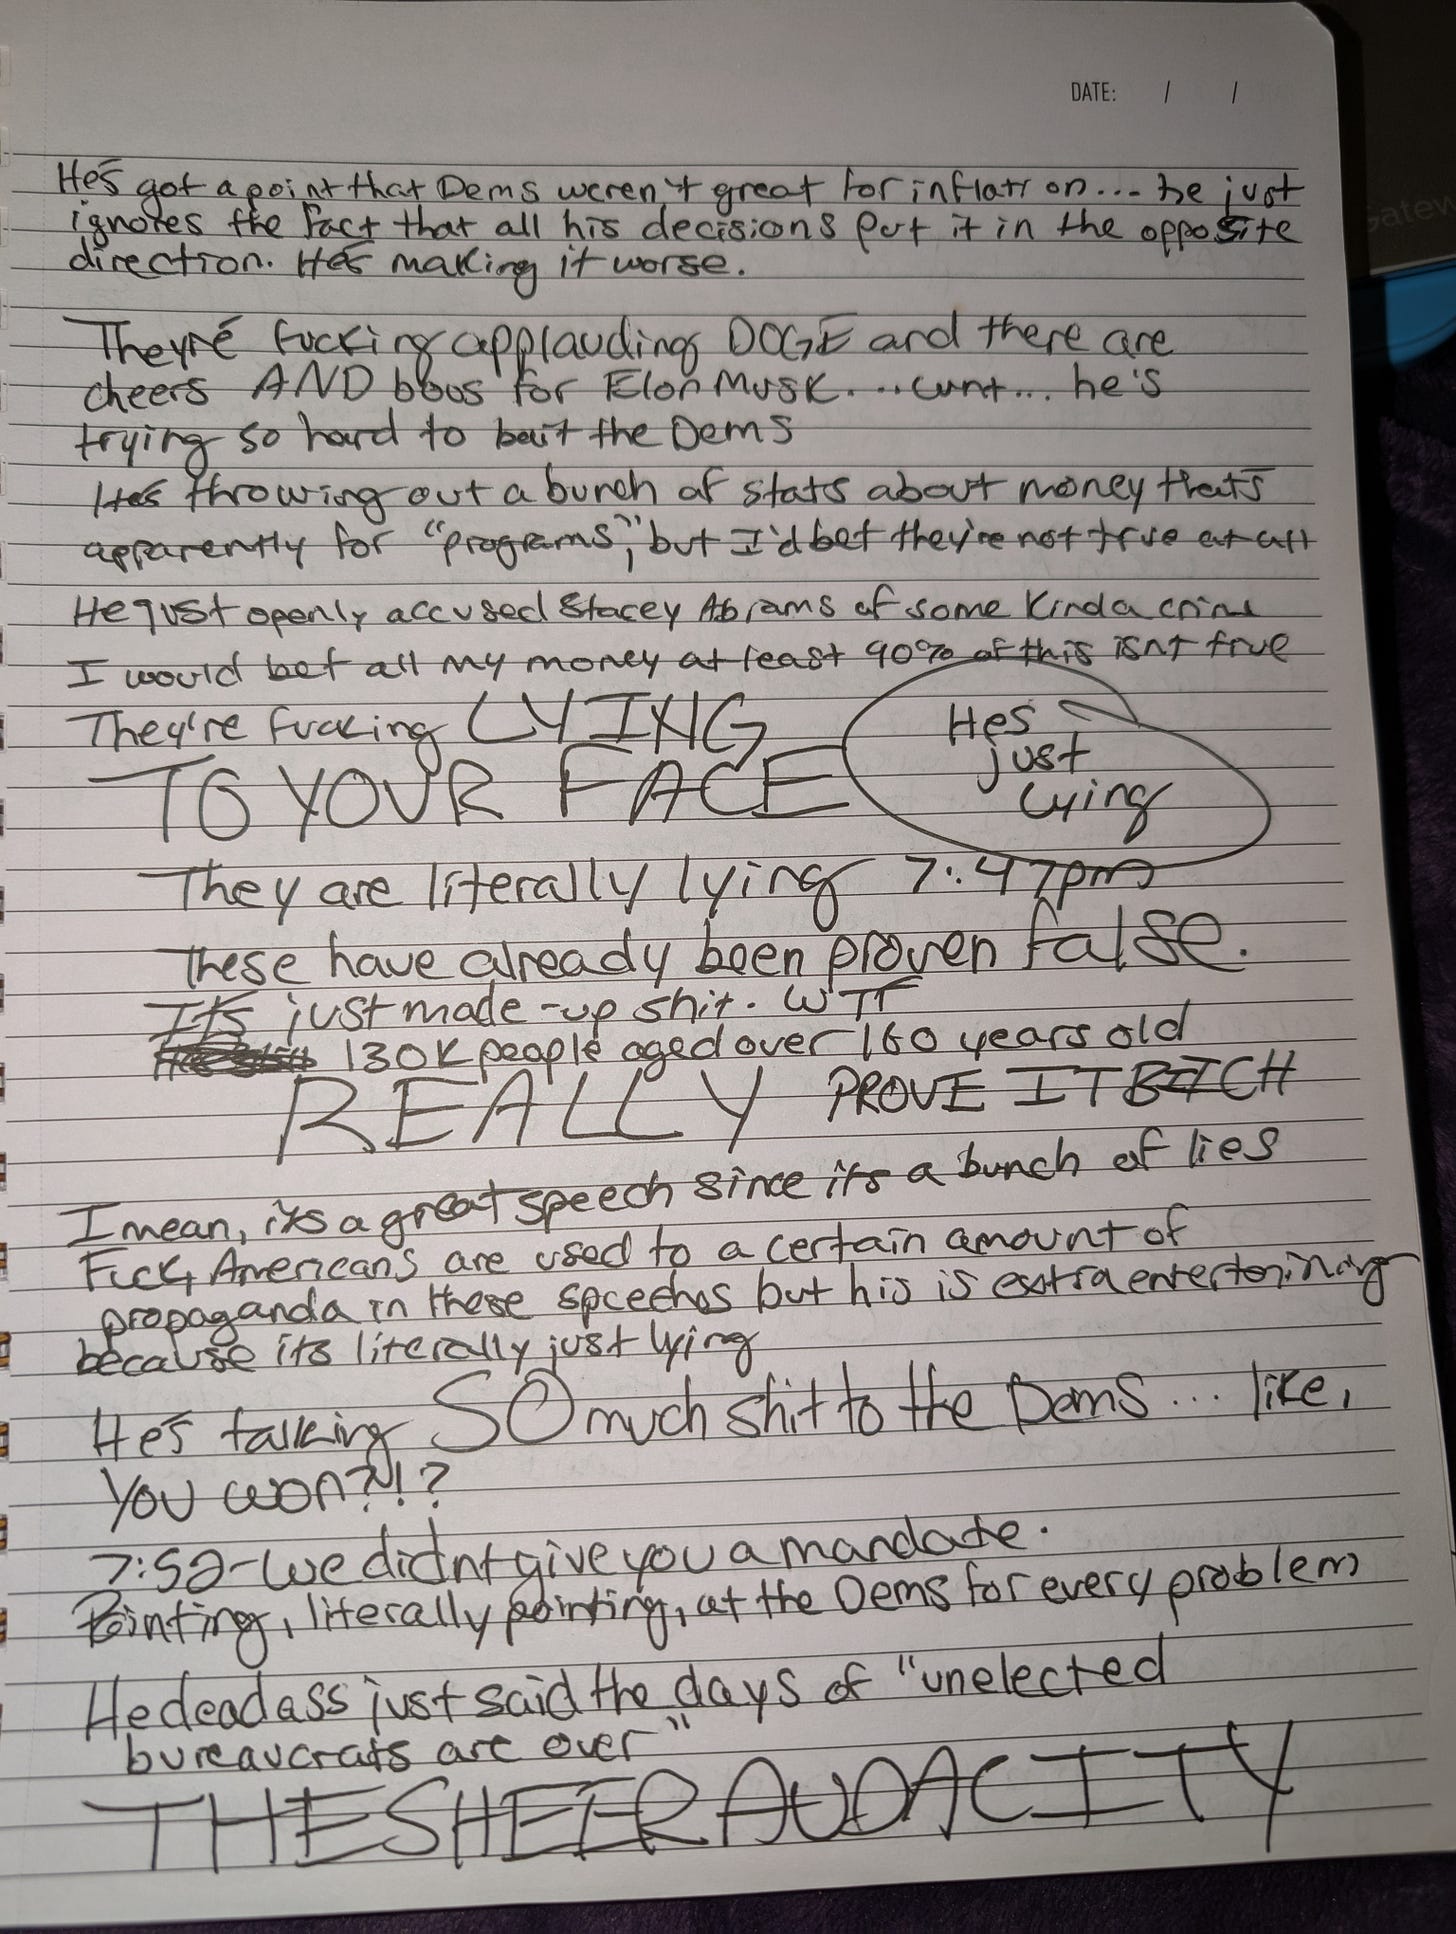 DATE: / /
He's got a point that Dems weren't great for inflation... he just
ignores the fact that all his decisions put it in the opposite
direction. He's making it worse.
They're fucking applauding DOGE and there are
cheers AND boos for Elon Musk....cunt... he's
trying so hard to bait the Dems
He's throwing out a bunch of stats about money that's
apparently for "programs," but I'd bet they're not true at all
He just openly accused Stacey Abrams of some kinda crime
I would bet all my money at least 90% of this isnt true
They're fucking LYING
TO YOUR FACE
He's
just
lying
They are literally lying 7:47pm
These have already been proven false.
It's just made-up shit. WTF
130K people aged over 160 years old
REALLY PROVE IT BITCH
I mean, its a great speech since its a bunch of lies
Fuck, Americans are used to a certain amount of
propaganda in these speeches but his is extra entertaining
because its literally just lying
He's talking SO much shit to the Dems... like,
You won?!?
7:52-We didnt give you a mandate.
Pointing, literally pointing, at the Dems for every problem
He deadass just said the days of "unelected
bureaucrats are over"
THE SHEER AUDACITY